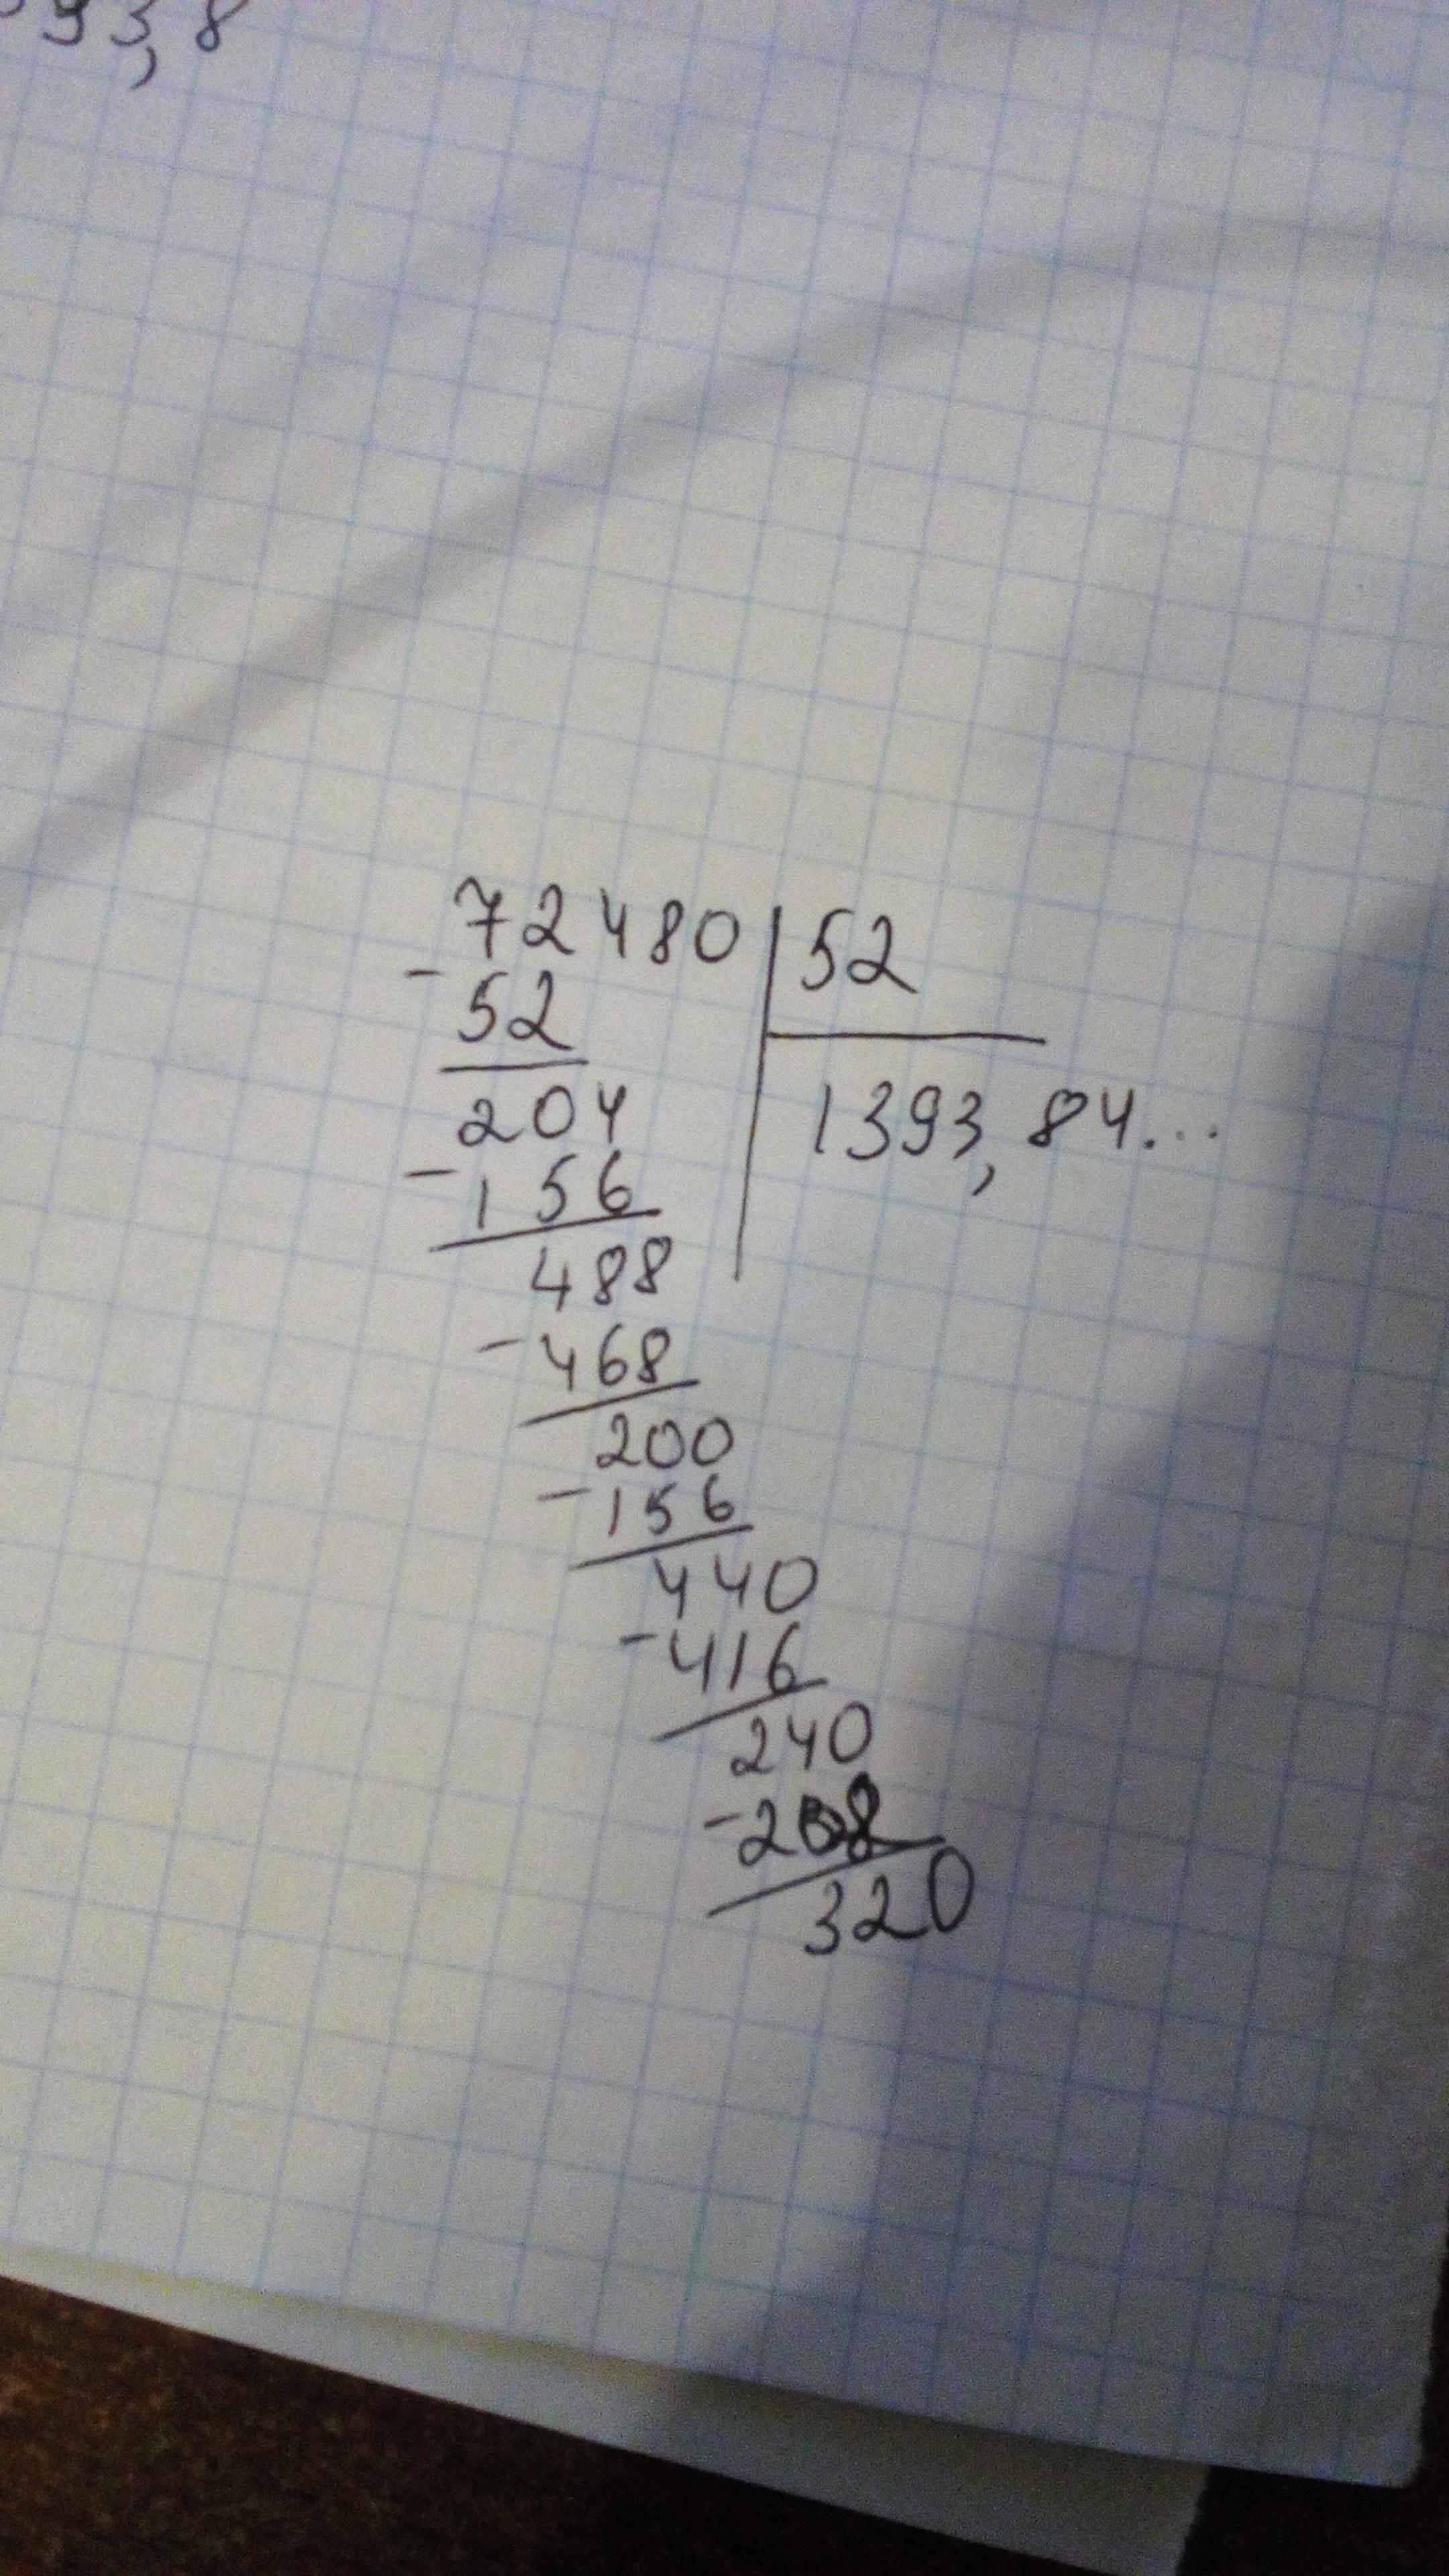 93,8
72480 52
- 52
204 1393,84...
- 156
488
- 468
200
- 156
440
- 416
240
- 208
320